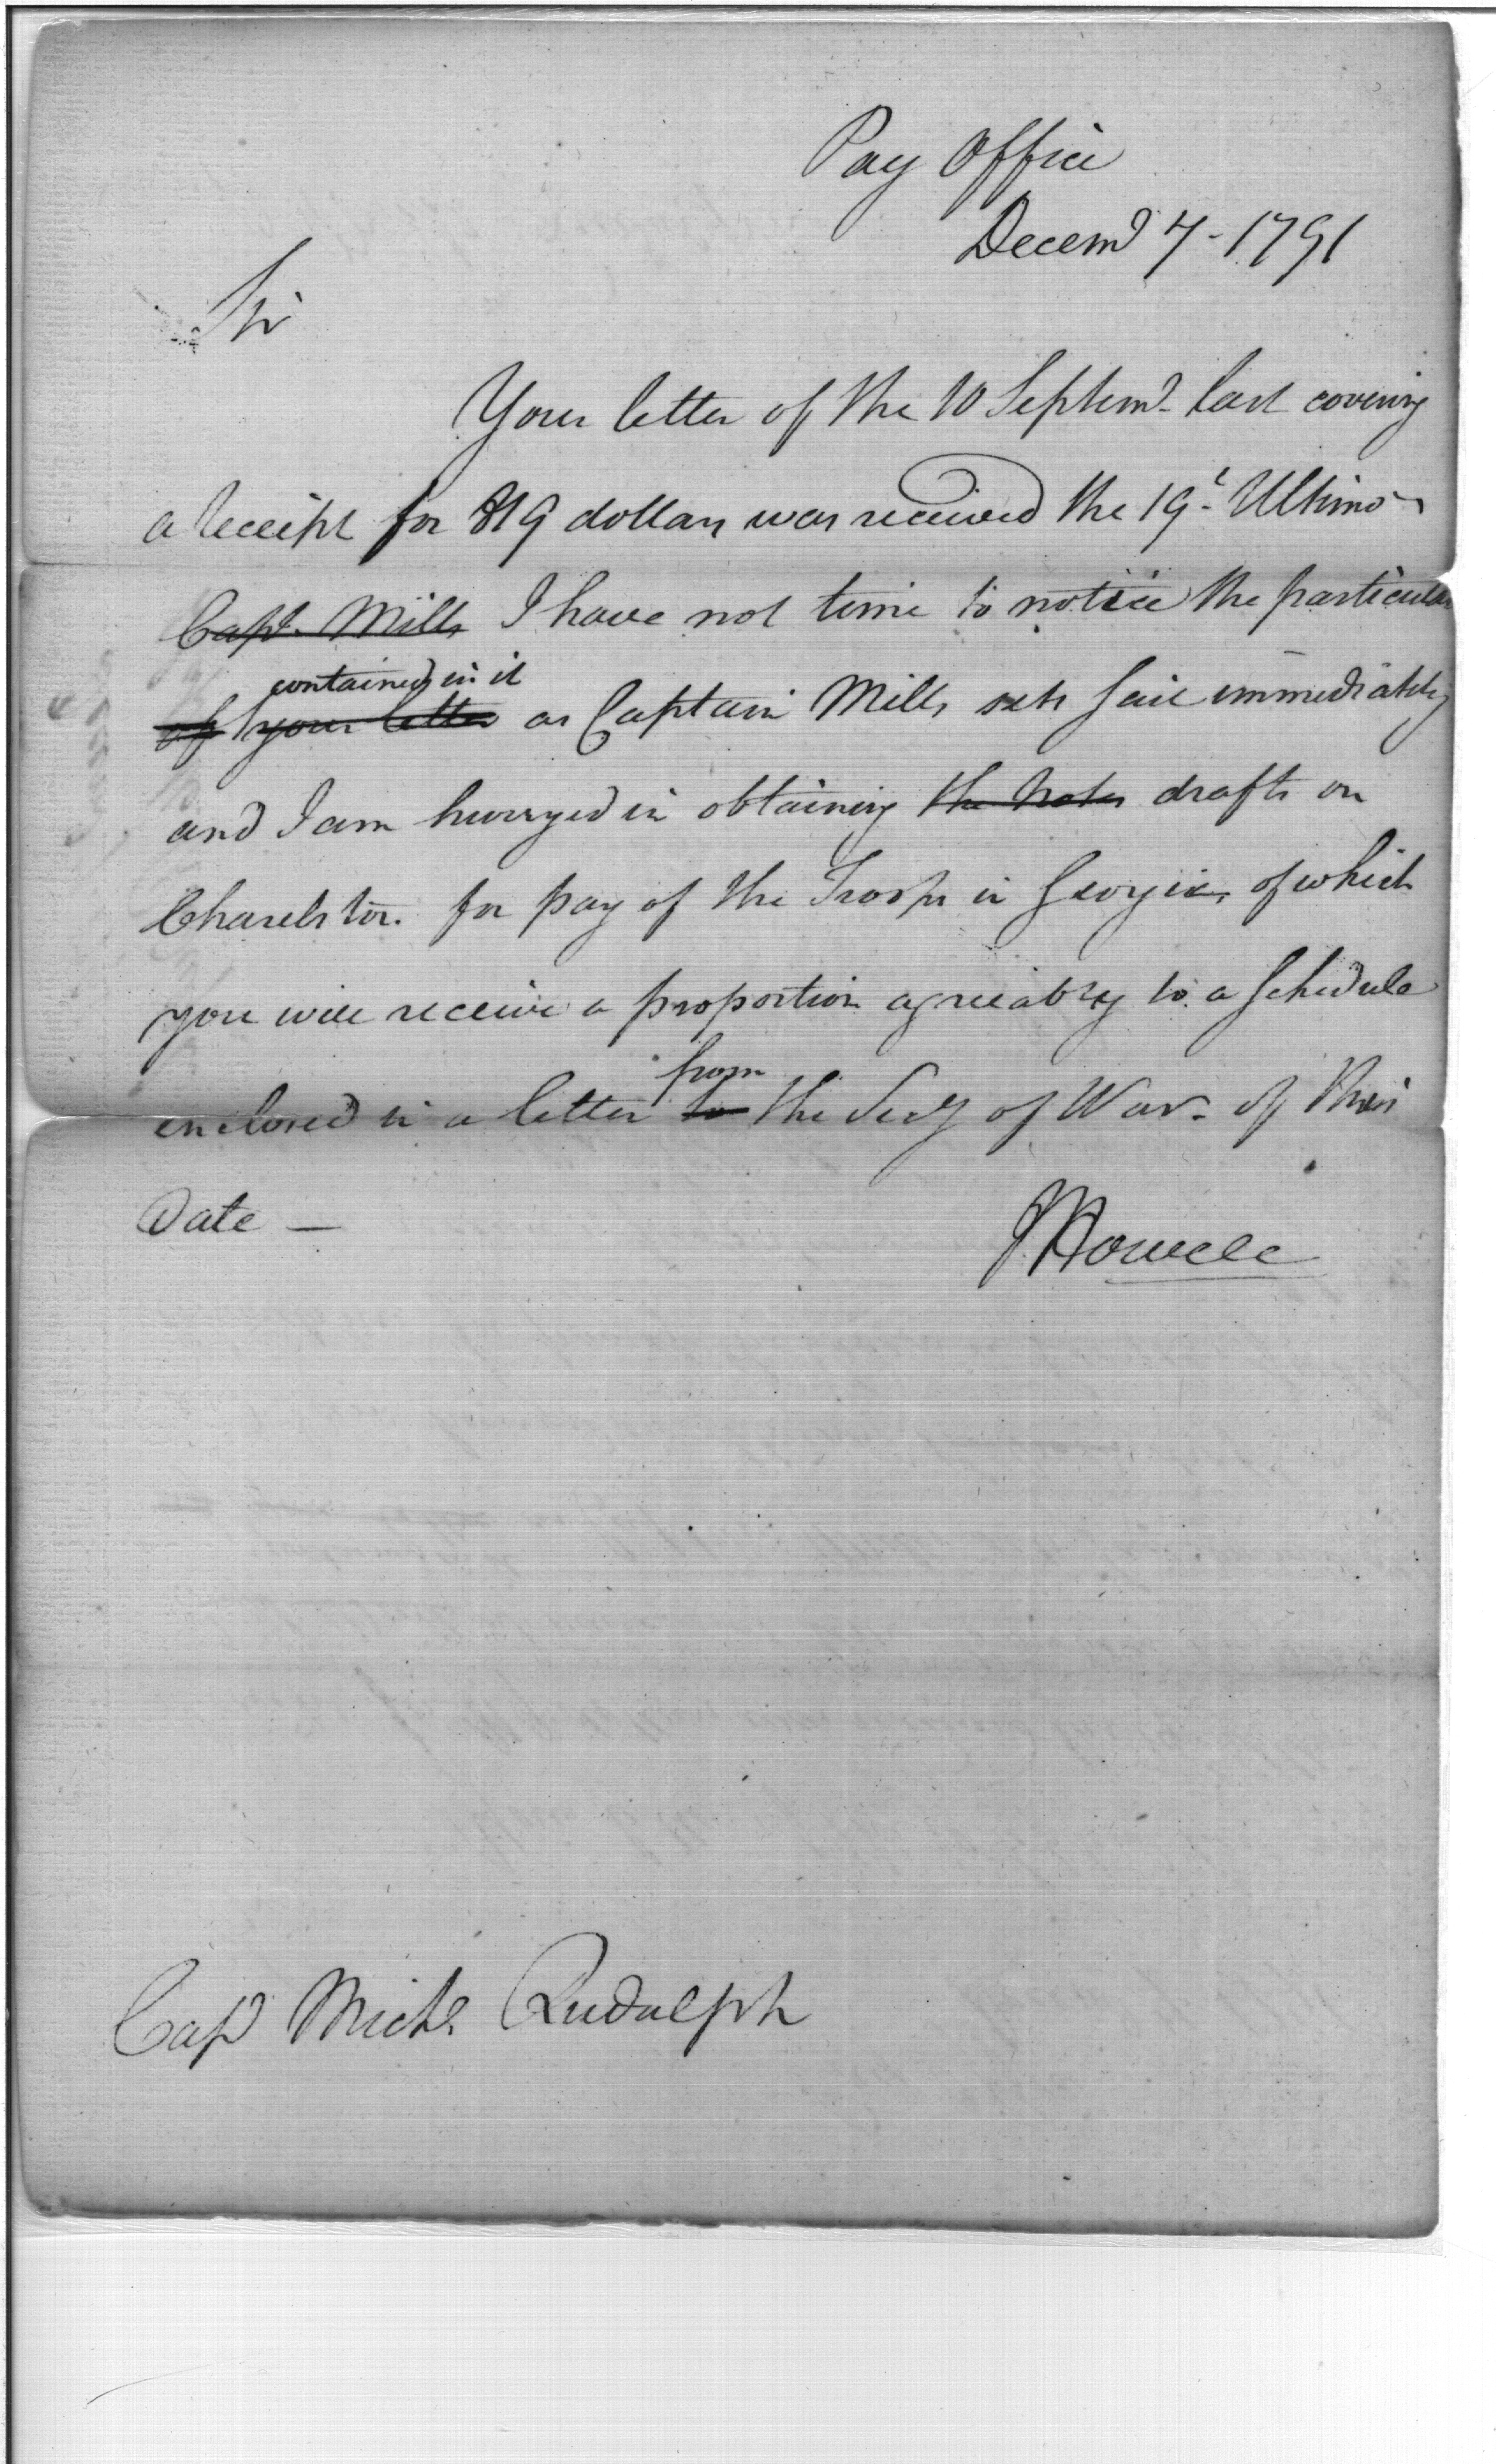 Pay Office
Decemr 7 - 1791
Sir
Your letter of the 10 Septemr last covering
a receipt for 819 dollars was received the 19t Ultimo -
Capt. Mills I have not time to notice the particular
contained in it
of your letter as Captain Mills sets sail immediately
and I am hurryed in obtaining the Notes drafts on
Charelston. for pay of the Troops in Georgia, of which
you will receive a proportion agreeably to a schedule
from
enclosed in a letter to the Secy of War. of this
Date —
J Howell
Cap Michl Rudulph